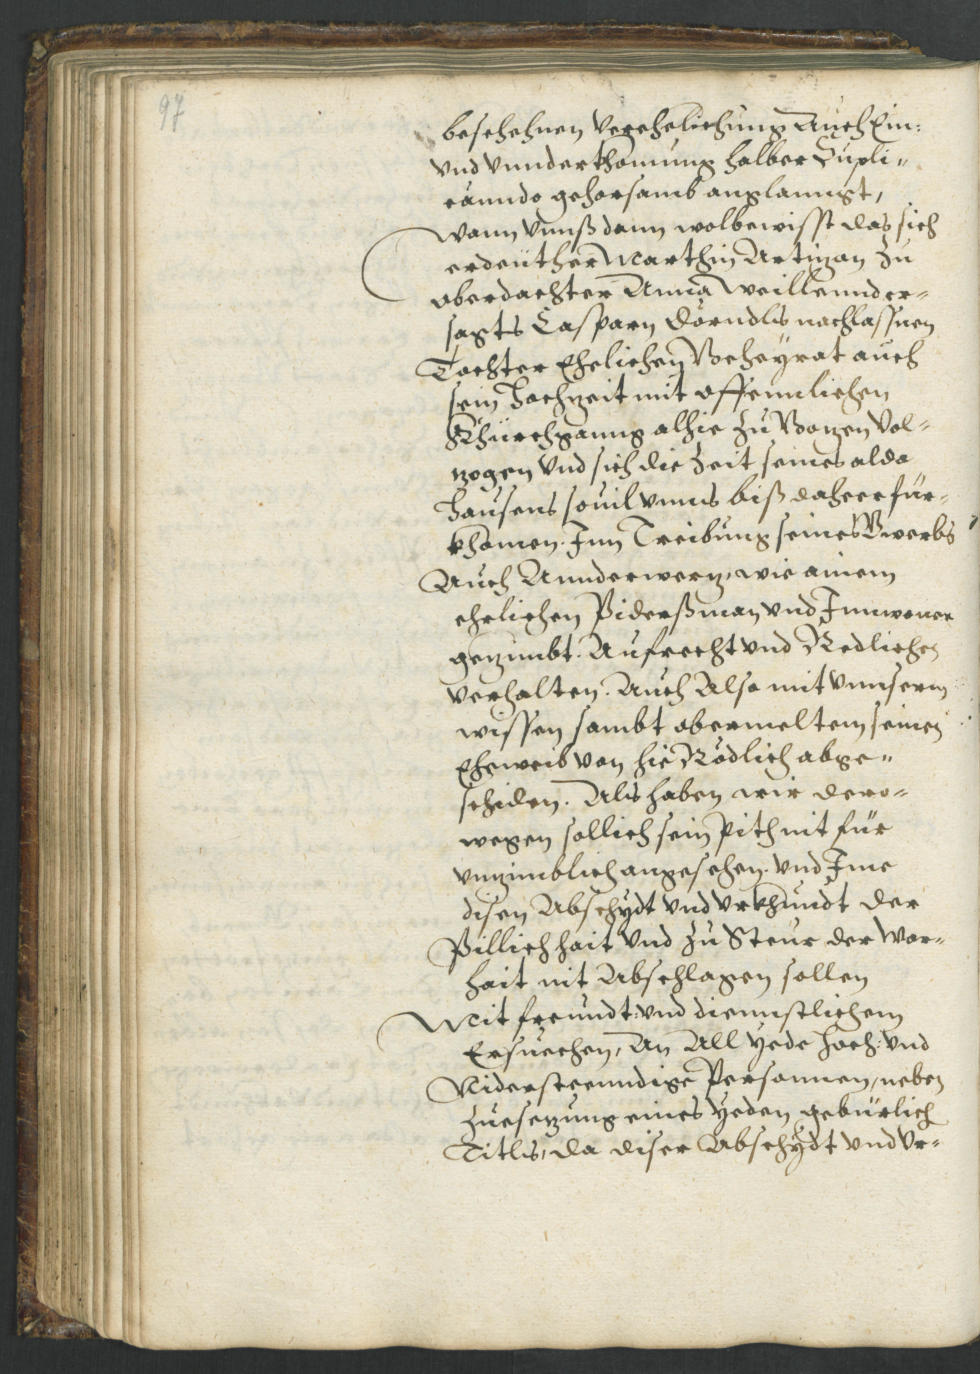 97
beschehnen Verehelichung Auch Ein:
vnd Vnnderkhomung halber Supli„
canndo gehorsamb anglanngt,
Wann Vnnß dann wolbewisst das sich
erdeuther Marthin Artman Zu
oberdachter Anna weillennder-
sagts Casparn Dörndls nachlassnen
Tochter Ehelichen Verheyrat auch
sein Hochzeit mit offennlichen
Khürchganng alhie Zu Bozen Vol-
zogen Vnd sich die Zeit seines alda
Hausens souil vnns biß daherr für-
khomen. Inn Treibung seines Gwerbs
Auch Annderwerz, wie ainem
ehrlichen Piderßman vnd Innwoner
gezimbt. Aufrecht vnd Redlichen
verhalten. Auch Also mit vnnserm
wissen sambt obermeltem seinem
Eheweib von hie Rödlich abge„
schiden. Als haben wir dero-
wegen sollich sein Pith nit für
vnzimblich angesehen. vnd Ime
disen Abschydt vnd vrkhundt der
Pillichhait Vnd Zu Steur der War-
hait nit Abschlagen sollen
Mit freundt: vnd diennstlichem
Ersuechen, An All Yede Hoch: vnd
Niderstenndige Personnen, neben
Zuesezung eines Yeden gebürlich
Titls, da diser Abschydt vnd Vr-